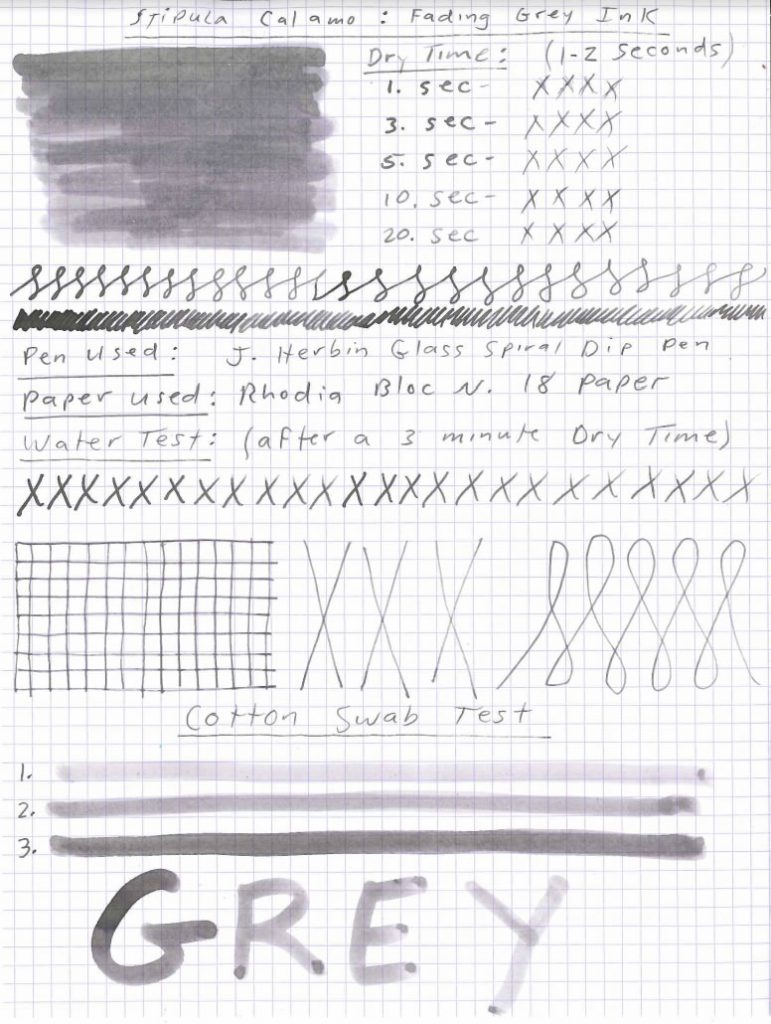 Stipula Calamo : Fading Grey Ink
Dry Time: (1-2 seconds)
1. sec- X X X X
3. sec- X X X X
5. sec- X X X X
10. sec- X X X X
20. sec X X X X
Pen Used: J. Herbin Glass Spiral Dip Pen
Paper Used: Rhodia Bloc N. 18 Paper
Water Test: (after a 3 minute Dry Time)
X X X X X X X X X X X X X X X X X X X X X X X X X
X X X
Cotton Swab Test
1.
2.
3.
GREY